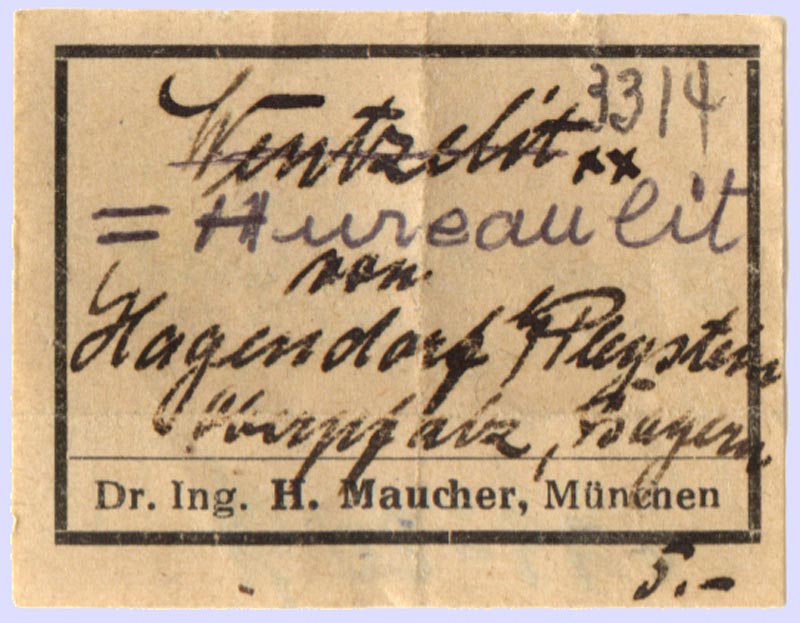 Wentzelit xx 3314
= Hureaulit
von
Hagendorf b/Pleystein
Oberpfalz, Bayern.
Dr. Ing. H. Maucher, München
5.-